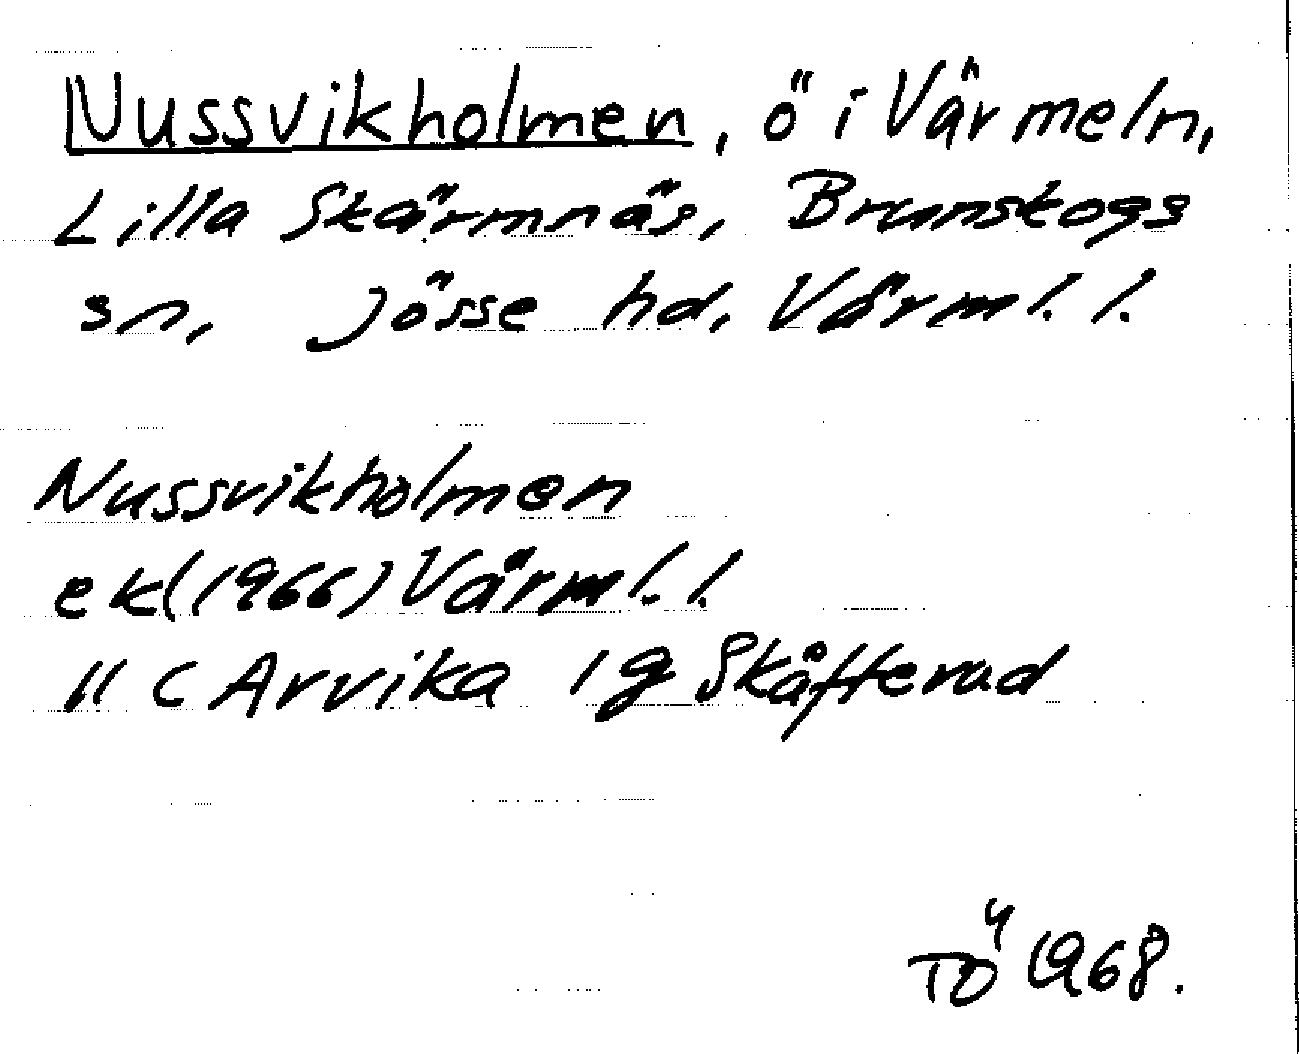 Nussvikholmen, ö i Värmeln,
Lilla Skärmnäs, Brunskogs
sn, Jösse hd, Värml. l.
Nussvikholmen
ek (1966) Värml. l.
11 C Arvika 1 g Skåfterud
TÖ 1968.